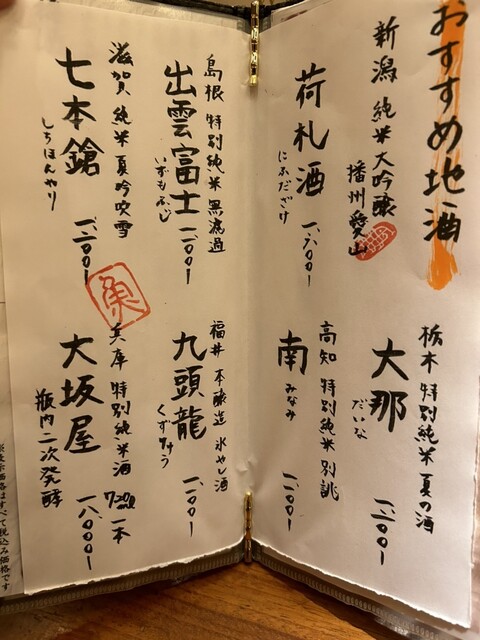 おすすめ地酒
新潟 純米大吟醸
播州愛山
荷札酒
にふだざけ
一、六〇〇ー
栃木 特別純米 夏の酒
大那
だいな
一、二〇〇ー
高知 特別純米 別誂
南
みなみ
一、一〇〇ー
島根 特別純米 無濾過
出雲富士
いずもふじ
一、一〇〇ー
福井 本醸造 氷やし酒
九頭龍
くずりゅう
一、〇〇〇ー
滋賀 純米 夏吟吹雪
七本鎗
しちほんやり
一、二〇〇ー
魚
兵庫 特別純米酒 720ml 一本
大坂屋
瓶内二次発酵
一八、〇〇〇ー
※表示価格はすべて税込み価格です